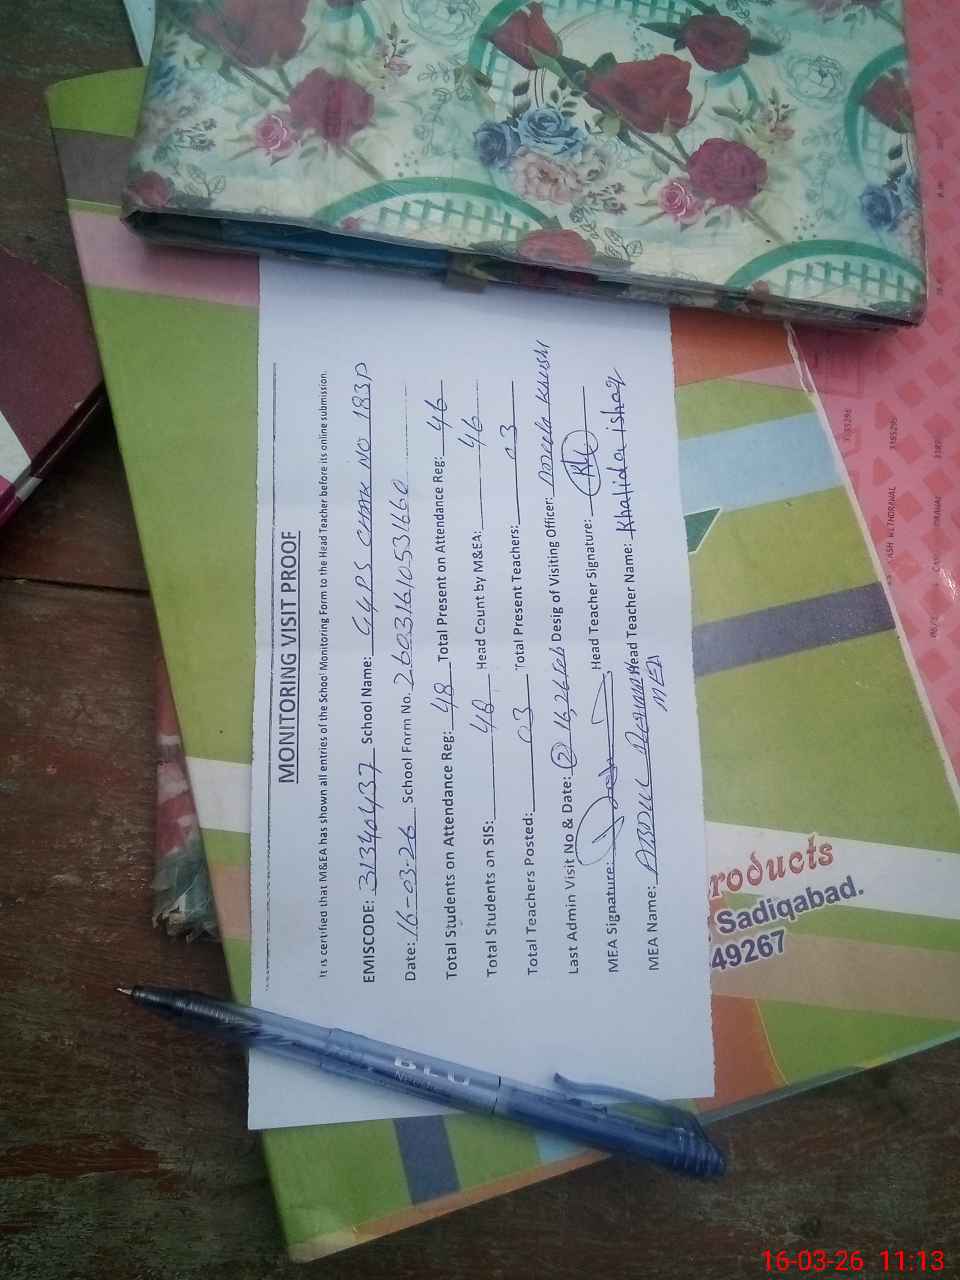 MONITORING VISIT PROOF
It is certified that M&EA has shown all entries of the School Monitoring Form to the Head Teacher before its online submission.
EMISCODE: 31340437 School Name: GGPS CHAK NO 183P
Date: 16-03-26 School Form No. 26031610531660
Total Students on Attendance Reg: 48 Total Present on Attendance Reg: 46
Total Students on SIS: 48 Head Count by M&EA: 46
Total Teachers Posted: 03 Total Present Teachers: 03
Last Admin Visit No & Date: (2) 16,26 Feb Desig of Visiting Officer:
MEA Signature: Head Teacher Signature:
MEA Name: ABDUL Head Teacher Name: Khalida ishaq
MEA
BLU
roducts
Sadiqabad.
49267
ASH WITHDRAWAL
16-03-26 11:13